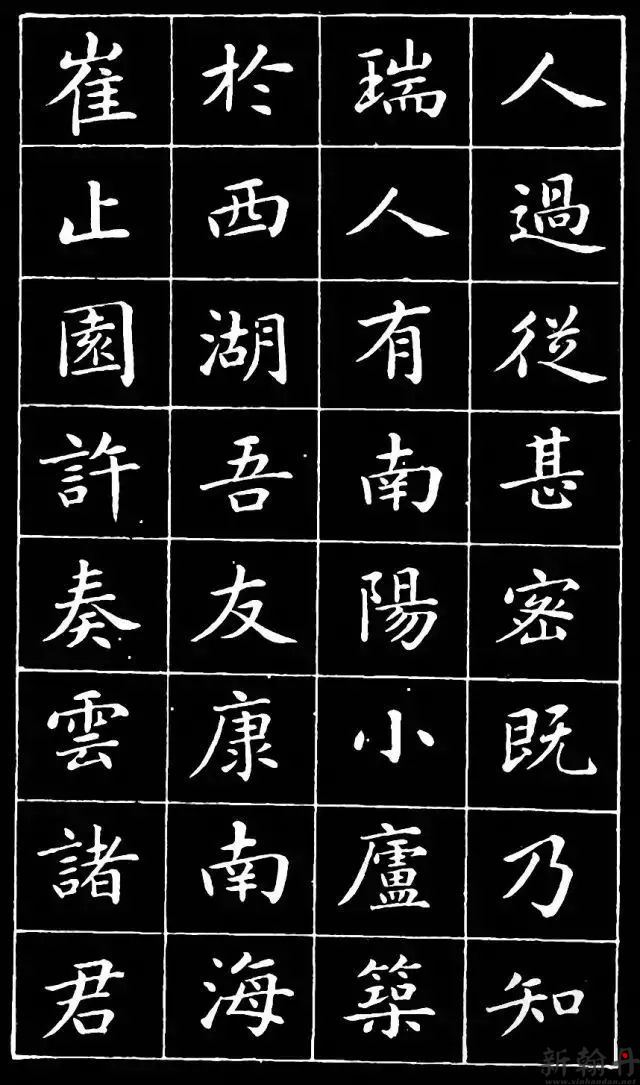 人過從甚密既乃知
瑞人有南陽小廬築
於西湖吾友康南海
崔止園許奏雲諸君
新翰丹
www.xinhandan.net